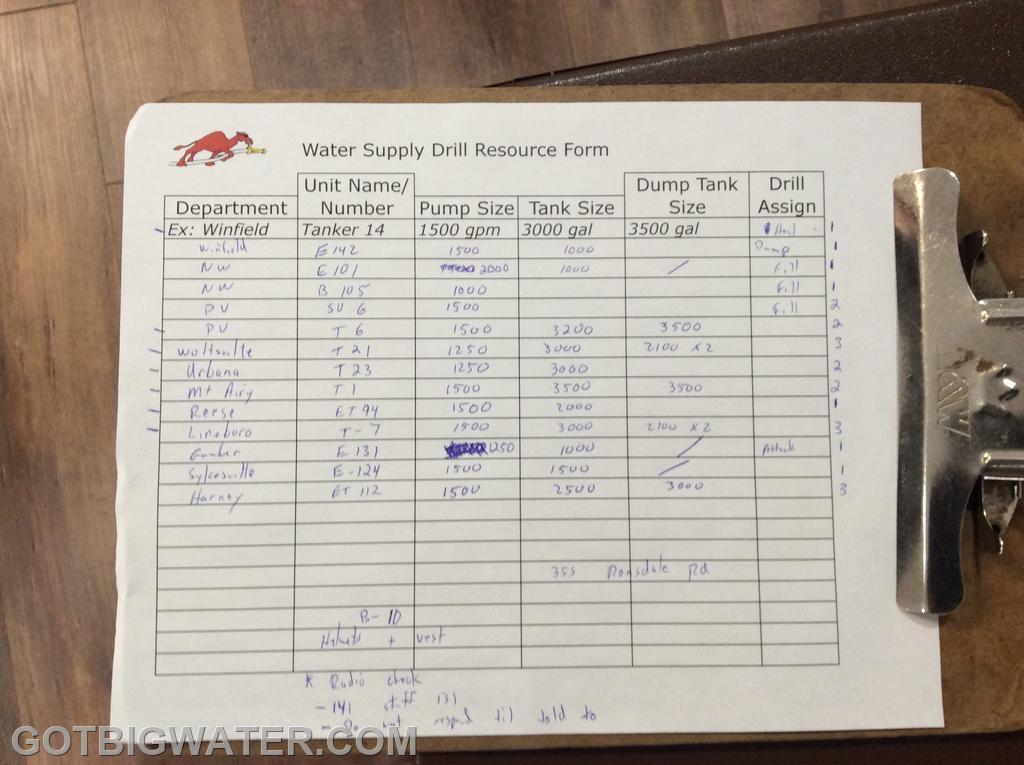 Water Supply Drill Resource Form
Unit Name/ Dump Tank Drill
Department Number Pump Size Tank Size Size Assign
Ex: Winfield Tanker 14 1500 gpm 3000 gal 3500 gal 1
Winfield E 142 1500 1000 Pump 1
NW E 101 2000 1000 / Fill 1
NW B 105 1000 Fill 1
PV SU 6 1500 Fill 2
PV T 6 1500 3200 3500 2
Wolfsville T 21 1250 3000 2100 x2 3
Urbana T 23 1250 3000 2
Mt Airy T 1 1500 3500 3500 2
Reese ET 94 1500 2000 1
Lineboro T-7 1500 3000 2100 x2 3
Gamber E 131 1250 1000 / Attack 1
Sykesville E-124 1500 1500 / 1
Harney ET 112 1500 2500 3000 3
355 Ronsdale Rd
B-10
Helmets + vest
* Radio check
- 141 staff 131
- Do not respond til told to
GOTBIGWATER.COM